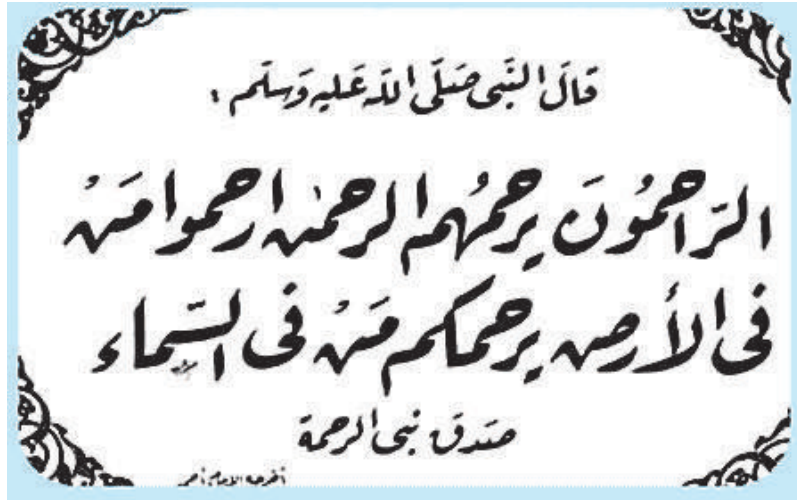 قَالَ النَّبِى صَلَّى اللّه عَليه وَسلّم :
الرّاحمُونَ يرحمُهم الرحمٰن ارحموا مَنْ
فى الأرض يرحمكم مَنْ فى السّماء
صَدق نبى الرحمة
أخرجه الإمام أحمد